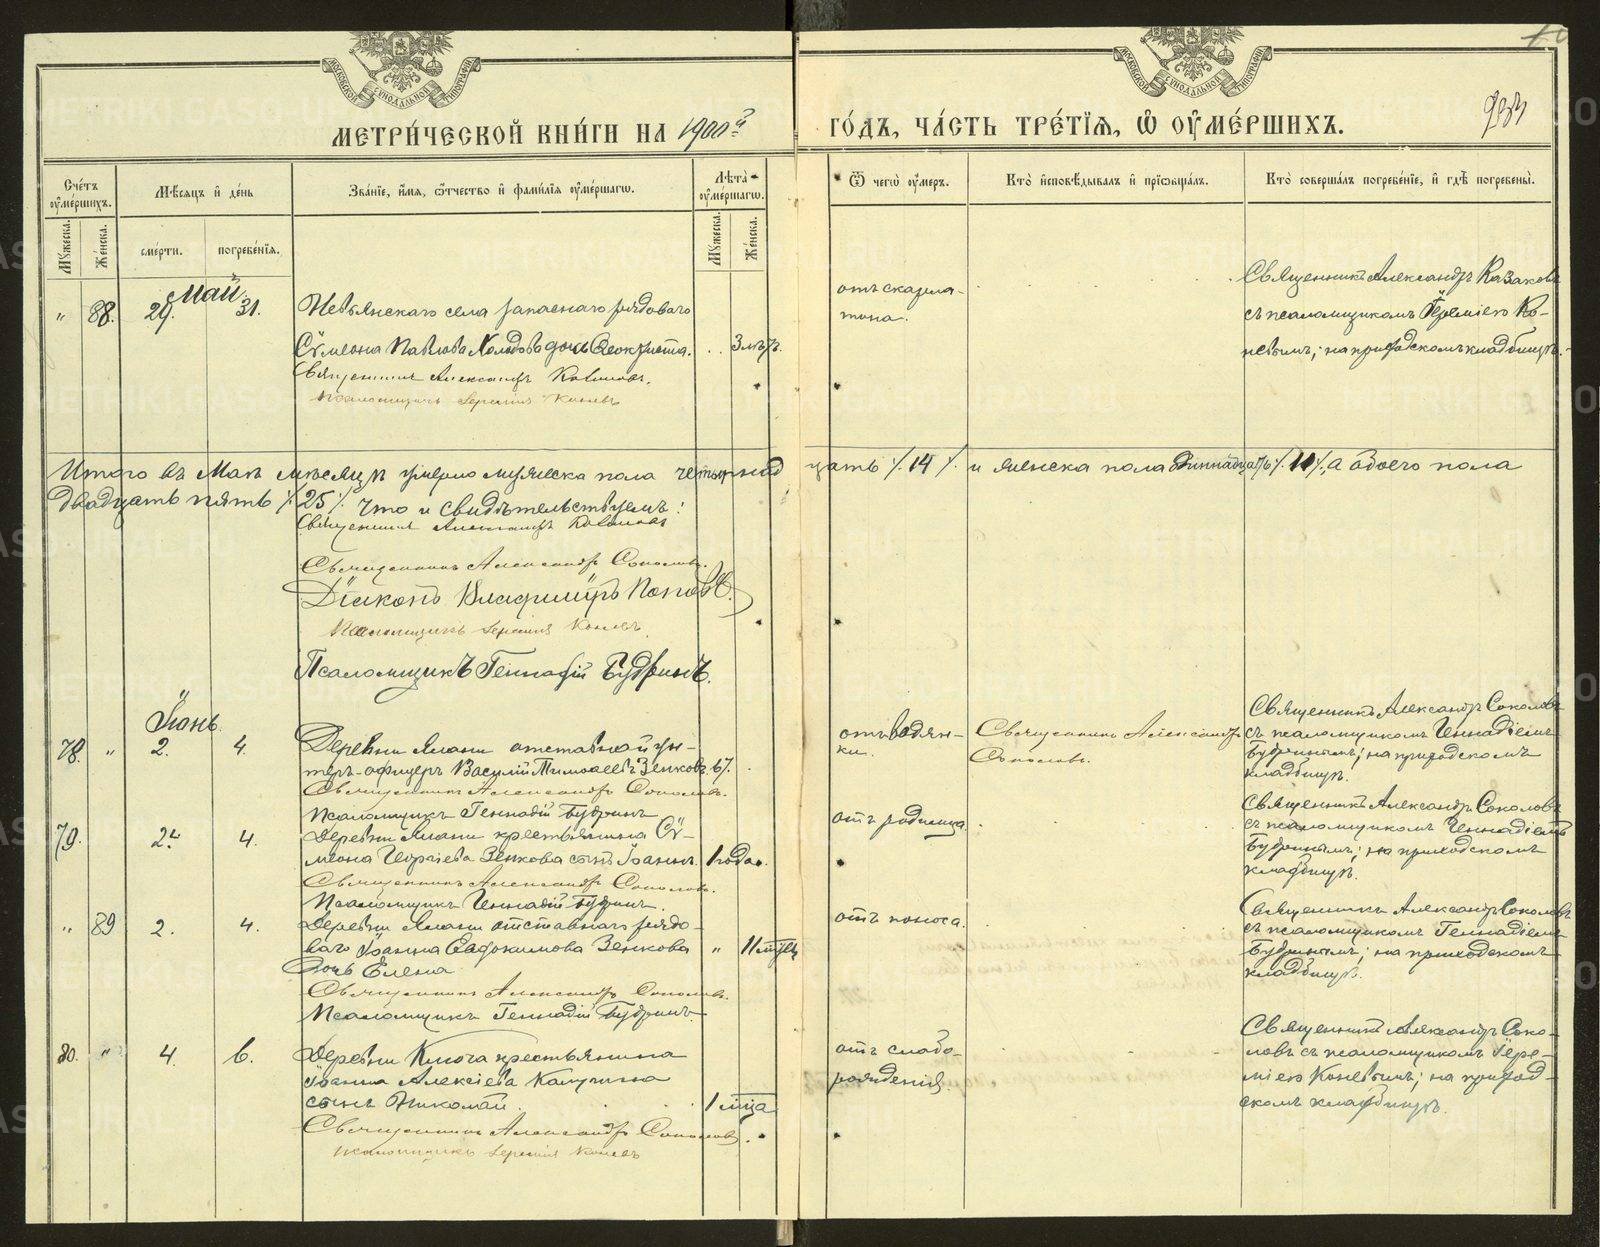 МЕТРИ́ЧЕСКОЙ КНИ́ГИ НА 1900й ГО́ДЪ, ЧА́СТЬ ТРЕ́ТІЯ, Ѡ ОУМЕ́РШИХЪ.
Сче́тъ оумершихъ.
Мужеска.
Же́нска.
Мѣсяцъ и де́нь
сме́рти.
погребе́нія.
Зва́ніе, и́мя, ѻтчество и фами́лія оуме́ршагѡ.
Лѣта оуме́ршагѡ.
Мужеска.
Же́нска.
Ѿ чегѡ оу́меръ.
Кто̀ исповѣ́дывалъ и прїѡбща́лъ.
Кто̀ соверша́лъ погребе́ніе, и гдѣ̀ погребены̀.
Май.
" 88. 29. 31.
Невьянскаго села запаснаго рядоваго
Сѵмеона Павлова Холодова дочь Ѳеоктиста.
3 лѣтъ.
Священникъ Александръ Казаковъ.
Псаломщикъ Іеремія Коневъ
отъ скарла-
тина.
Священникъ Александръ Казаковъ
съ псаломщикомъ Іереміею Ко-
невымъ; на приходскомъ кладбищѣ.
Итого въ Маѣ мѣсяцѣ умерло мужеска пола четырнадцать /14/ и женска пола одиннадцать /11/, а обоего пола
двадцать пять /25/. Что и свидѣтельствуемъ:
Священникъ Александръ Казаковъ
Священникъ Александръ Соколовъ.
Діаконъ Владиміръ Поповъ.
Псаломщикъ Іеремія Коневъ
Псаломщикъ Геннадій Будринъ.
Іюнь.
78. " 2. 4.
Деревни Ялани отставной ун-
теръ-офицеръ Василій Тимоѳеевъ Зенковъ.
67.
Священникъ Александръ Соколовъ.
Псаломщикъ Геннадій Будринъ
отъ водян-
ки.
Священникъ Александръ
Соколовъ.
Священникъ Александръ Соколовъ
съ псаломщикомъ Геннадіемъ
Будринымъ; на приходскомъ
кладбищѣ.
79. 2. 4.
Деревни Ялани крестьянина Сѵ-
меона Георгіева Зенкова сынъ Іоаннъ.
1 года.
Священникъ Александръ Соколовъ.
Псаломщикъ Геннадій Будринъ.
отъ родимца.
Священникъ Александръ Соколовъ
съ псаломщикомъ Геннадіемъ
Будринымъ; на приходскомъ
кладбищѣ.
" 89 2. 4.
Деревни Ялани отставнаго рядо-
ваго Іоанна Евдокимова Зенкова
дочь Елена
" 11 мцевъ
Священникъ Александръ Соколовъ.
Псаломщикъ Геннадій Будринъ.
отъ поноса.
Священникъ Александръ Соколовъ
съ псаломщикомъ Геннадіемъ
Будринымъ; на приходскомъ
кладбищѣ.
80. " 4. 6.
Деревни Ключа крестьянина
Іоанна Алексіева
сынъ Николай.
1 мца
Священникъ Александръ Соколовъ.
Псаломщикъ Іеремія Коневъ
отъ слабо-
рожденія.
Священникъ Александръ Соко-
ловъ съ псаломщикомъ Іере-
міею Коневымъ; на приход-
скомъ кладбищѣ.
METRIKI.GASO-URAL.RU